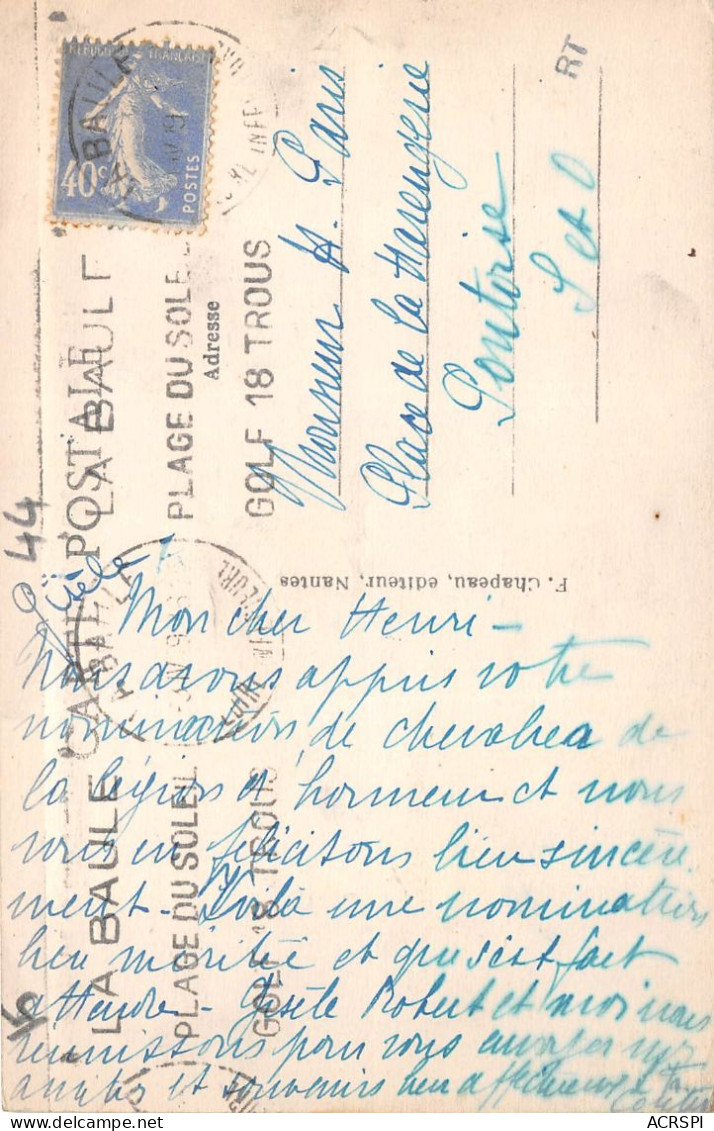 REPUBLIQUE FRANÇAISE
40c
POSTES
LA BAULE
LOIRE INFRE
CARTE POSTALE
LA BAULE
PLAGE DU SOLEIL
GOLF 18 TROUS
Adresse
Monsieur H. Paris
Place de la Harengerie
Pontoise
S et O
RT
44
F. Chapeau, éditeur, Nantes
LA BAULE
LOIRE INFERIEURE
LA BAULE
PLAGE DU SOLEIL
GOLF 18 TROUS
Mon cher Henri -
Nous avons appris votre
nomination de chevalier de
la légion d'honneur et nous
vous en félicitons bien sincère
ment - Voilà une nomination
bien méritée et qui s'est fait
attendre - Gisèle Robert et moi nous
réunissons pour vous envoyer nos
amitiés et souvenirs bien affectueux
ACRSPI